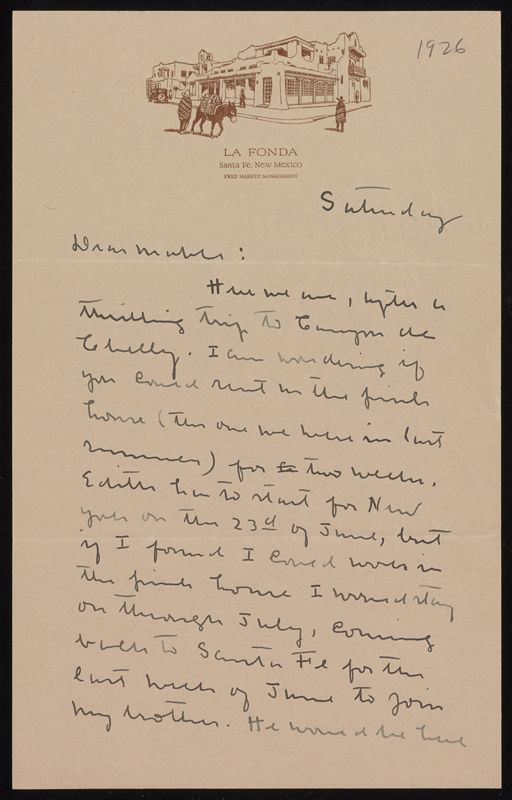 1926
LA FONDA
Santa Fe, New Mexico
FRED HARVEY, MANAGEMENT
Saturday
Dear Mabel:
Here we are, after a
thrilling trip to Canyon de
Chelly. I am wondering if
you could rent us the pink
house (the one we were in last
summer) for two weeks.
Edith has to start for New
York on the 23d of June, but
if I found I could work in
the pink house I would stay
on through July, coming
back to Santa Fe for the
last week of June to join
my brother. He would be here